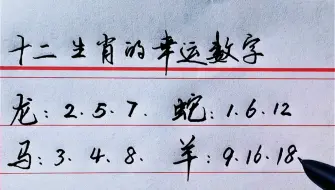 十二生肖的幸运数字
龙：2.5.7. 蛇：1.6.12
马：3.4.8. 羊：9.16.18